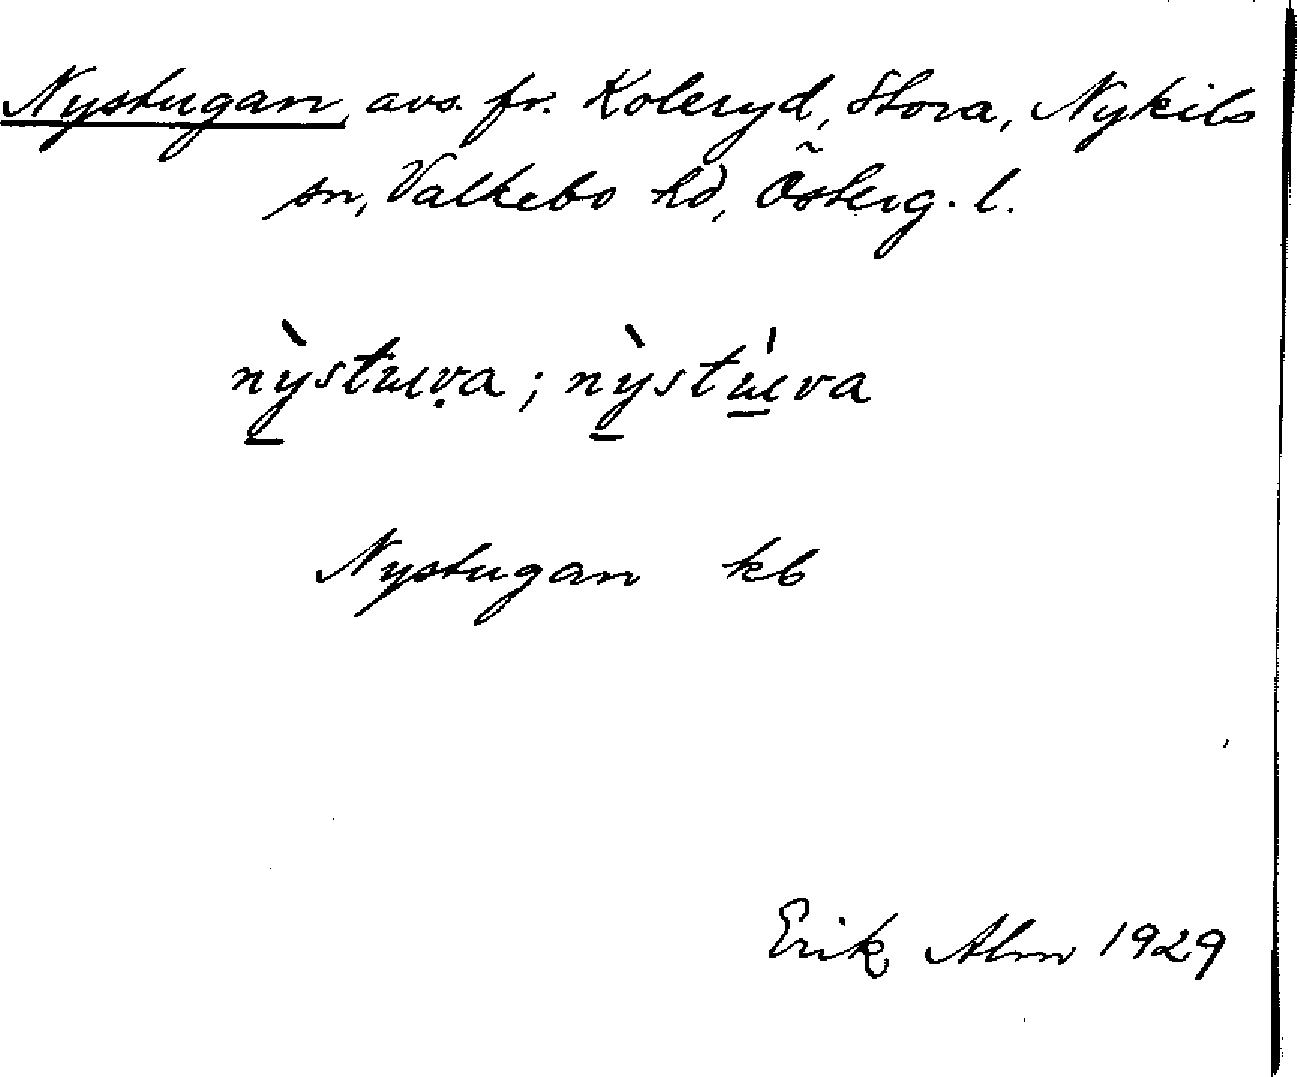 Nystugan, avs. fr. Koleryd, Stora, Nykils
sn, Valkebo hd, Österg. l.
nỳ̱stɯṿa; nỳ̱stɯ̱́va
Nystugan kb
Erik Alm 1929